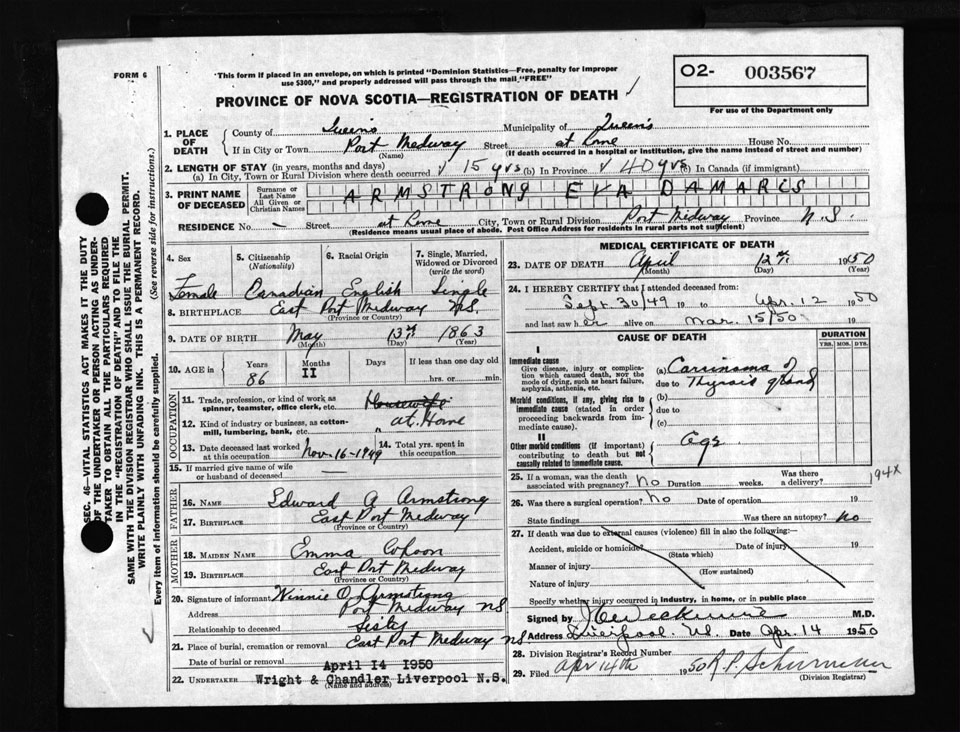 FORM 6
This form if placed in an envelope, on which is printed "Dominion Statistics—Free, penalty for improper
use $300," and properly addressed will pass through the mail "FREE"
O2- 003567
For use of the Department only
PROVINCE OF NOVA SCOTIA—REGISTRATION OF DEATH
1. PLACE OF DEATH
County of Queens Municipality of Queens
If in City or Town Port Medway Street at Home House No.
(Name) (If death occurred in a hospital or institution, give the name instead of street and number)
2. LENGTH OF STAY (in years, months and days)
(a) In City, Town or Rural Division where death occurred 15 yrs (b) In Province 40 yrs (c) In Canada (if immigrant)
3. PRINT NAME OF DECEASED
Surname or Last Name
All Given or Christian Names
ARMSTRONG EVA DAMARCS
RESIDENCE No. – Street at Home City, Town or Rural Division Port Medway Province N.S.
(Residence means usual place of abode. Post Office Address for residents in rural parts not sufficient)
4. Sex
Female
5. Citizenship
(Nationality)
Canadian
6. Racial Origin
English
7. Single, Married,
Widowed or Divorced
(write the word)
Single
8. BIRTHPLACE East Port Medway N.S.
(Province or Country)
9. DATE OF BIRTH May 13th 1863
(Month) (Day) (Year)
10. AGE in
Years Months Days If less than one day old
86 II hrs. or min.
OCCUPATION
11. Trade, profession, or kind of work as
spinner, teamster, office clerk, etc. Housewife
12. Kind of industry or business, as cotton-
mill, lumbering, bank, etc. " at Home
13. Date deceased last worked
at this occupation Nov-16-1949
14. Total yrs. spent in
this occupation
15. If married give name of wife
or husband of deceased —
FATHER
16. NAME Edward G Armstrong
17. BIRTHPLACE East Port Medway
(Province or Country)
MOTHER
18. MAIDEN NAME Emma Cohoon
19. BIRTHPLACE East Port Medway
(Province or Country)
20. Signature of informant Winnie O Armstrong
Address Port Medway NS
Relationship to deceased Sister
21. Place of burial, cremation or removal East Port Medway NS
Date of burial or removal April I4 I950
22. UNDERTAKER Wright & Chandler Liverpool N.S.
(Name and Address)
MEDICAL CERTIFICATE OF DEATH
23. DATE OF DEATH April 12th 1950
(Month) (Day) (Year)
24. I HEREBY CERTIFY that I attended deceased from:
Sept 30/49 19 to Apr. 12 1950
and last saw her alive on Mar. 15/50 19
CAUSE OF DEATH
DURATION
YRS. MOS. DYS.
I
Immediate cause
Give disease, injury or complica-
tion which caused death, not the
mode of dying, such as heart failure,
asphyxia, asthenia, etc.
(a) Carcinoma of
due to Thyroid gland
Morbid conditions, if any, giving rise to
immediate cause (stated in order
proceeding backwards from im-
mediate cause).
(b)
due to
(c)
II
Other morbid conditions (if important)
contributing to death but not
causally related to immediate cause.
Age
194X
25. If a woman, was the death
associated with pregnancy? No Duration weeks. Was there
a delivery?
26. Was there a surgical operation? No Date of operation 19
State findings Was there an autopsy? No
27. If death was due to external causes (violence) fill in also the following:
Accident, suicide or homicide? Date of injury 19
(State which)
Manner of injury
(How sustained)
Nature of injury
Specify whether injury occurred in industry, in home, or in public place
Signed by M.D.
Address Liverpool, Date Apr. 14 1950
28. Division Registrar's Record Number
29. Filed Apr 14th 1950
(Division Registrar)
SEC. 46—VITAL STATISTICS ACT MAKES IT THE DUTY
OF THE UNDERTAKER OR PERSON ACTING AS UNDER-
TAKER TO OBTAIN ALL THE PARTICULARS REQUIRED
IN THE "REGISTRATION OF DEATH" AND TO FILE THE
SAME WITH THE DIVISION REGISTRAR WHO SHALL ISSUE THE BURIAL PERMIT.
WRITE PLAINLY WITH UNFADING INK. THIS IS A PERMANENT RECORD.
Every item of information should be carefully supplied. (See reverse side for instructions.)